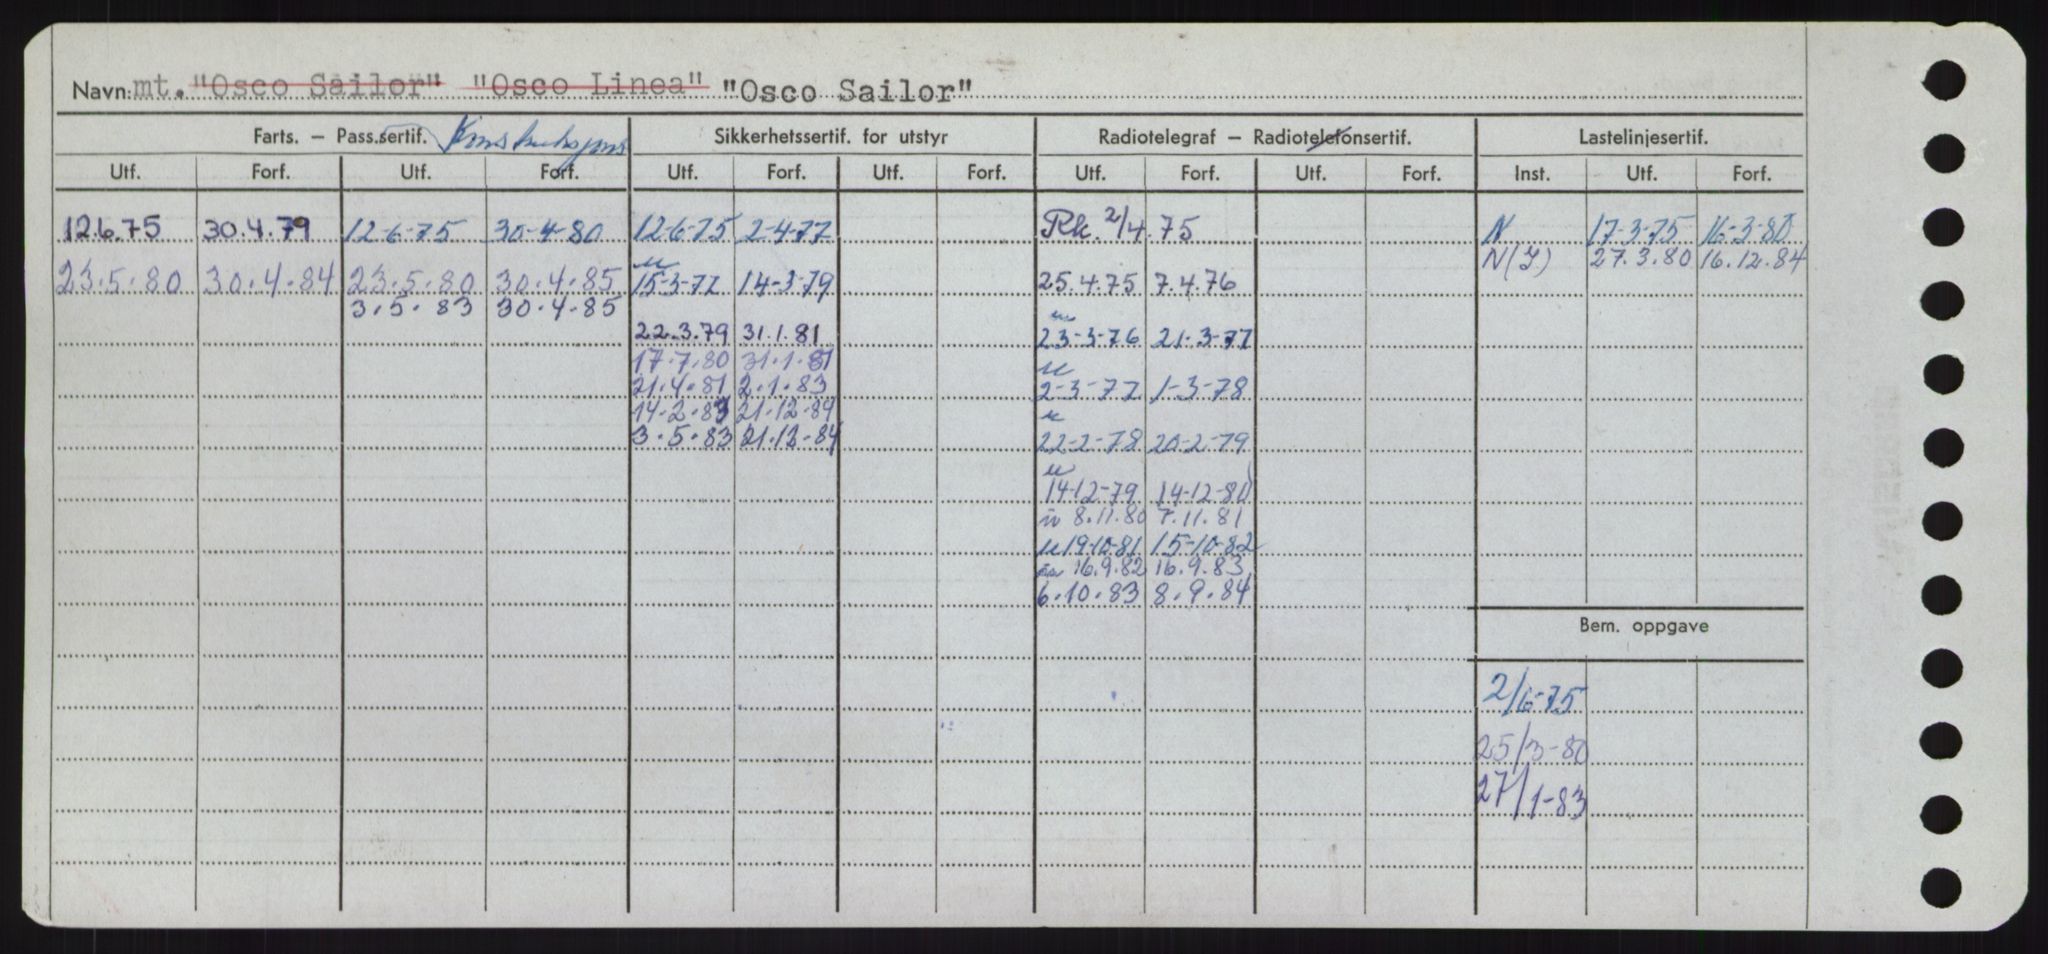 Navn: mt. "Osco Sailor" "Osco Linea" "Osco Sailor"
Farts. – Pass.sertif. Konstruksjons Sikkerhetssertif. for utstyr Radiotelegraf – Radiotelefonsertif. Lastelinjesertif.
Utf. Forf. Utf. Forf. Utf. Forf. Utf. Forf. Utf. Forf. Utf. Forf. Inst. Utf. Forf.
12.6.75 30.4.79 12-6-75 30-4-80 12-6-75 2-4-77 Rk. 2/4.75 N 17-3-75 16-3-80
N(Y) 27.3.80 16.12.84
23.5.80 30.4.84 23.5.80 30.4.85 15-3-77 14-3-79 25.4.75 7.4.76
3.5.83 30.4.85
22.3.79 31.1.81 23-3-76 21-3-77
17.7.80 31.1.81
21.4.81 2.1.83 2-3-77 1-3-78
14.2.83 21.12.84
3.5.83 21.12.84 22-2-78 20-2-79
14-12-79 14-12-80
8.11.80 7.11.81
19-10-81 15-10-82
16.9.82 16.9.83
6.10.83 8.9.84
Bem. oppgave
2/6-75
25/3-80
27/1-83